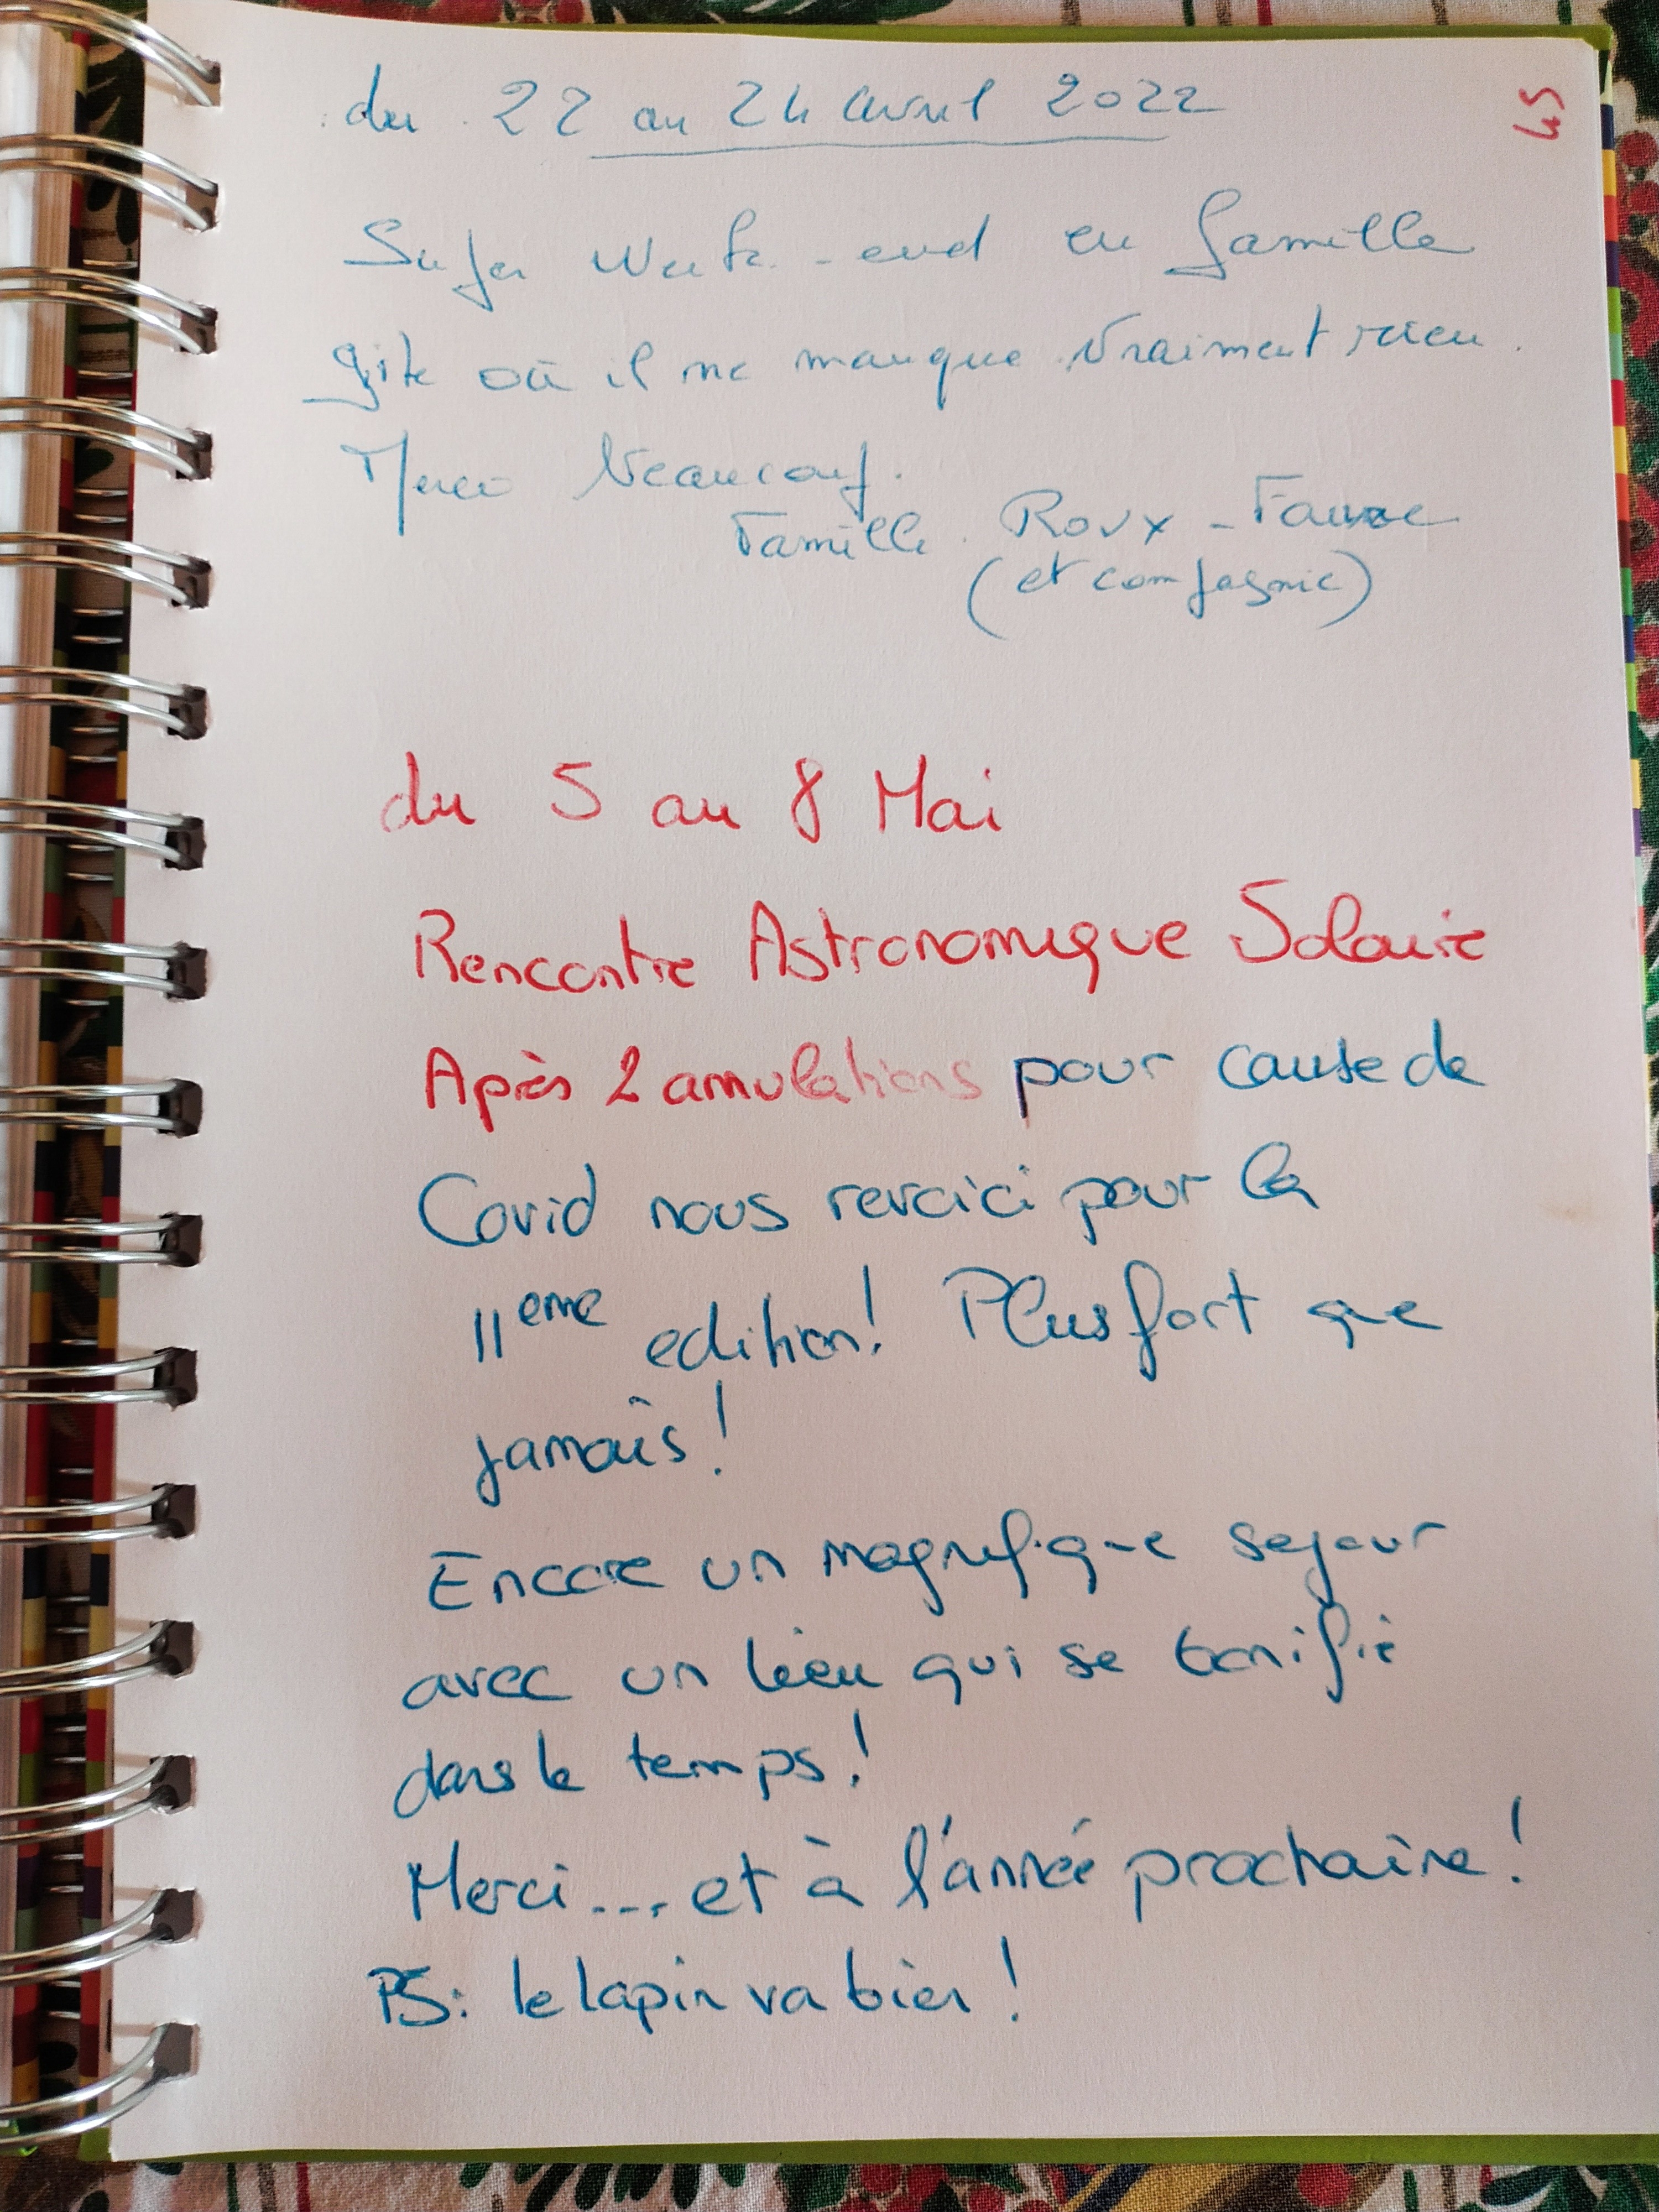 45
du 22 au 24 avril 2022
Super Week-end en famille
gite où il ne manque vraiment rien.
Merci beaucoup.
Famille Roux - Faure
(et compagnie)
du 5 au 8 Mai
Rencontre Astronomique Solaire
Après 2 annulations pour cause de
Covid nous revoici pour la
11eme edition! Plus fort que
jamais!
Encore un magnifique sejour
avec un lieu qui se bonifie
dans le temps!
Merci... et à l'année prochaine!
PS: le lapin va bien!